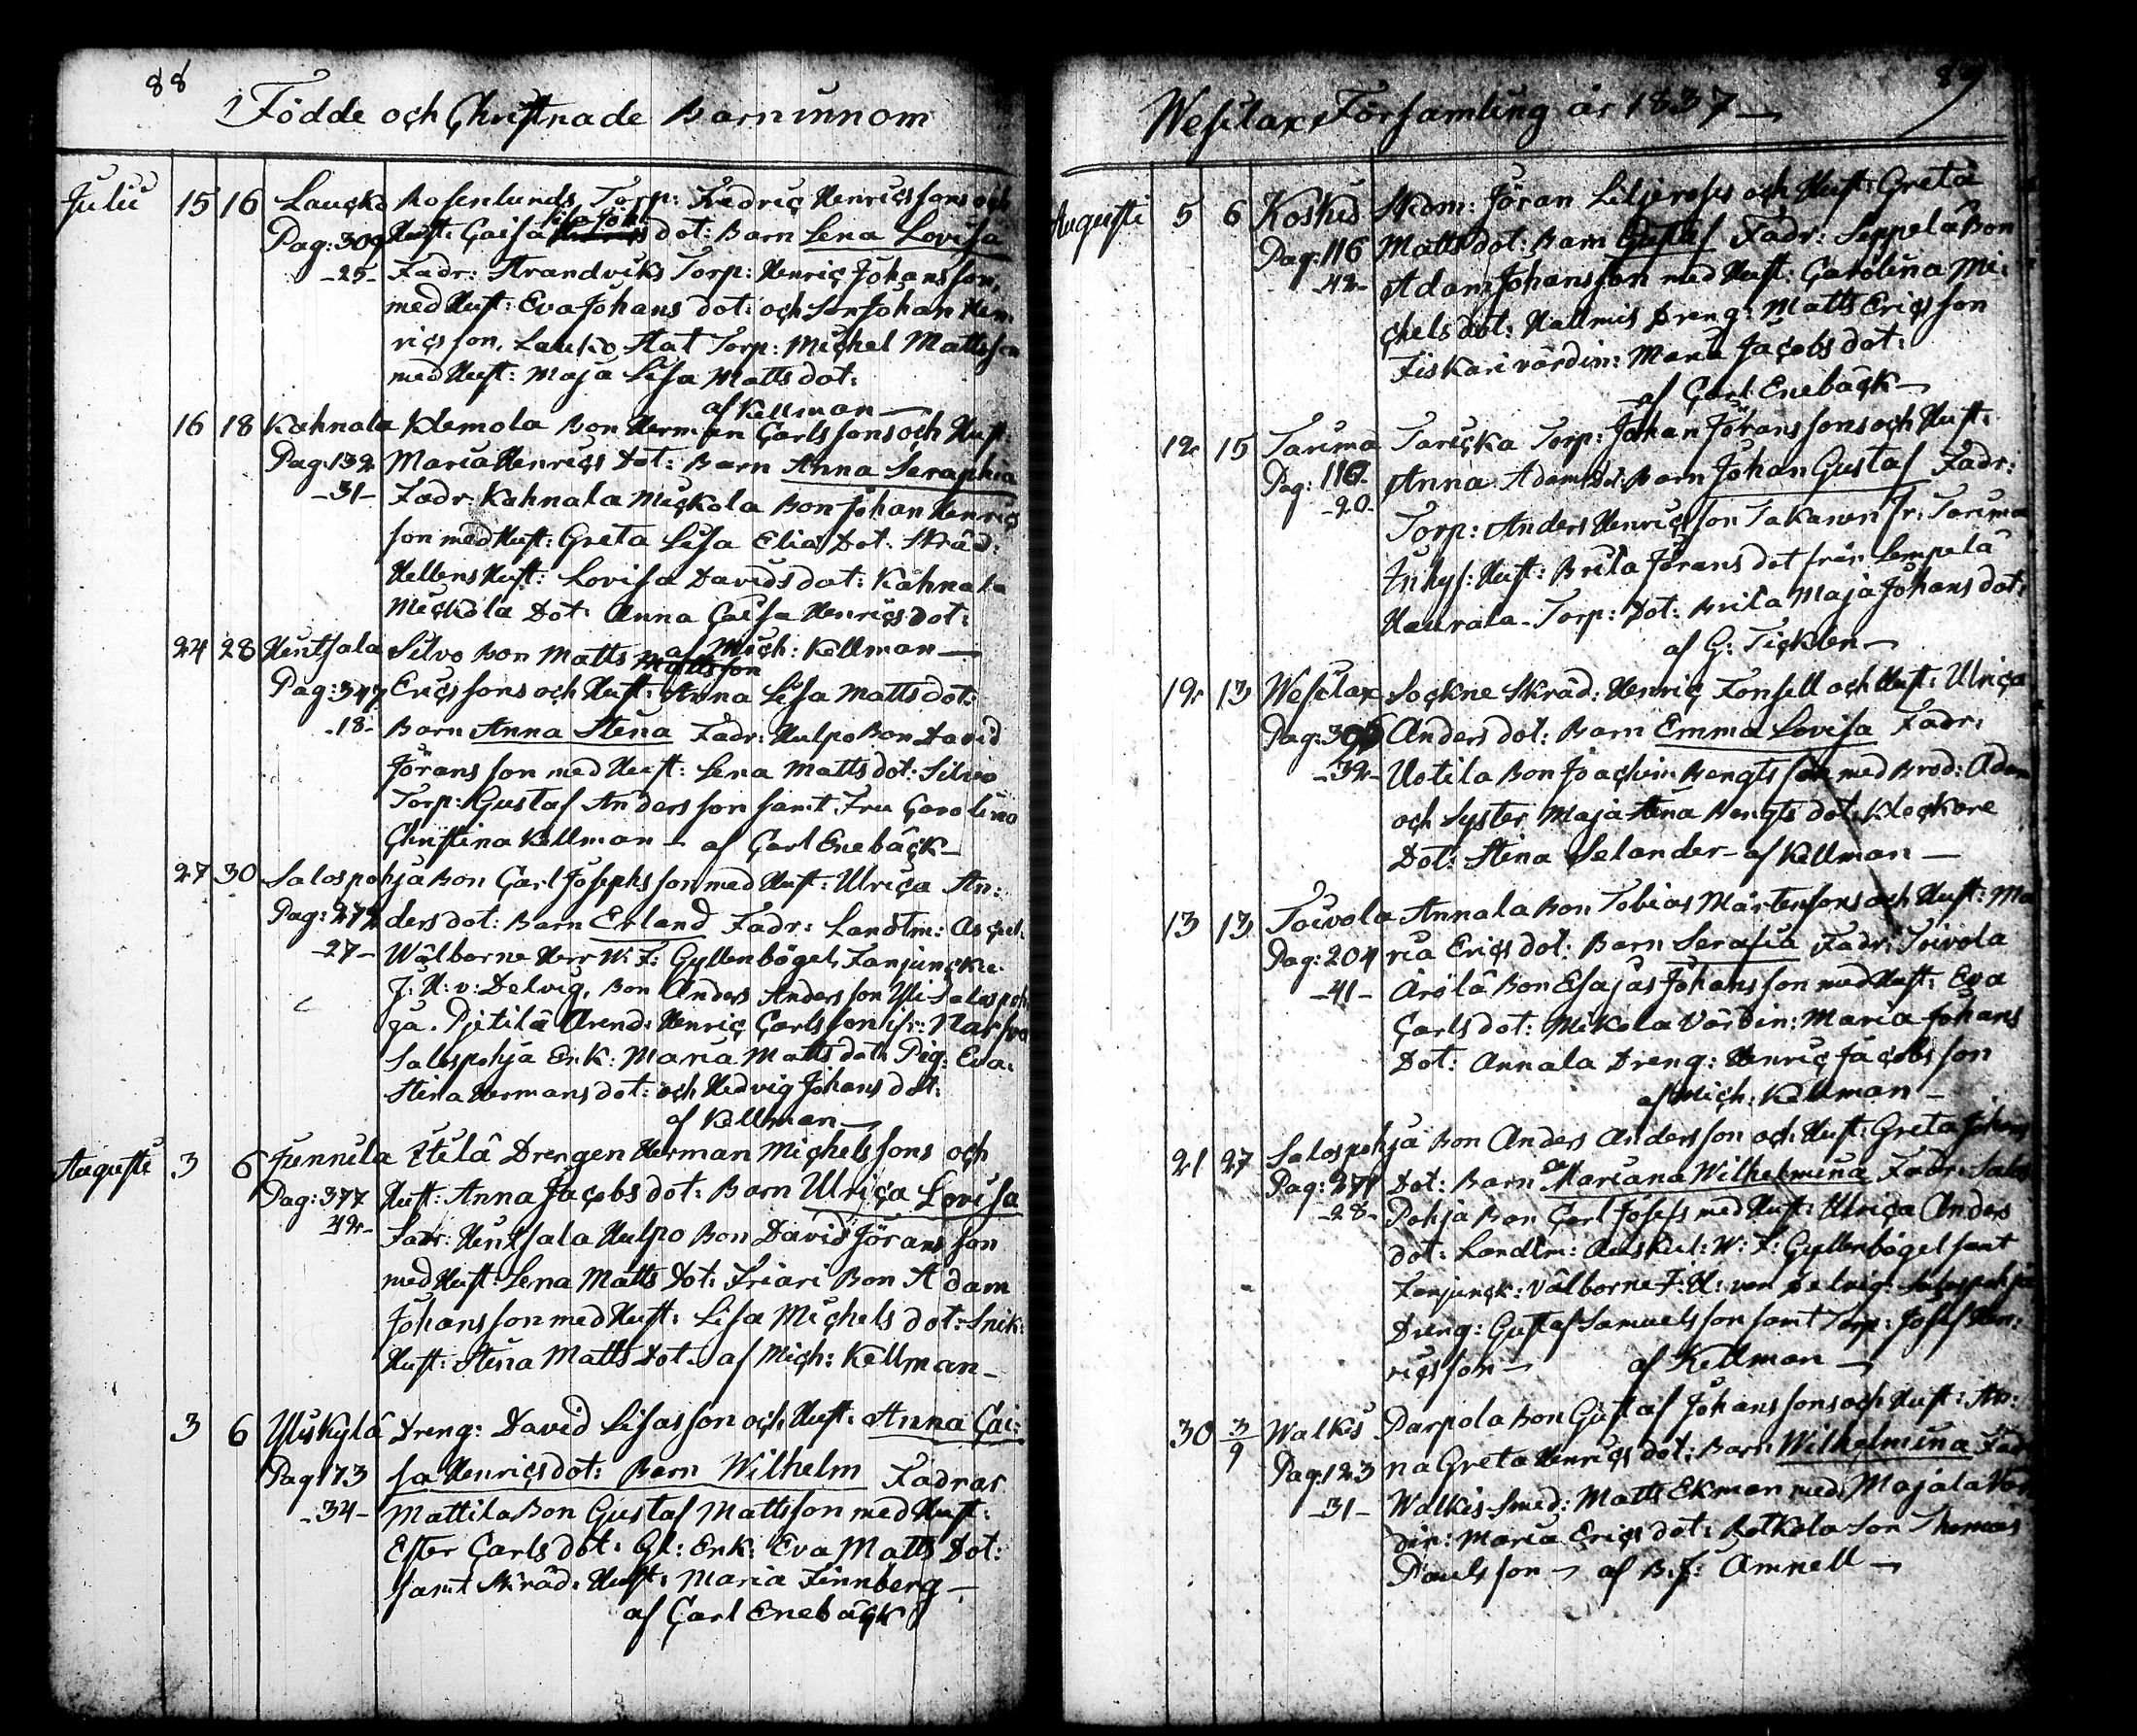 88
Födde och Christnade Barn innom
Julii 15 16 Laucko Rosenlunds Torp: Fredric Henricssons och
Pag: 309 Hust: Caisa dot: Barn Lena Lovisa
-25- Fadr: Strandviks Torp: Henric Johansson,
med Hust: Eva Johans dot: och Son Johan Hen
ricsson, Lauko Stat Torp: Michel Mattsson
med Hust: Maja Lisa Matts dot:
af Kellman —
16 18 Kahnala Klemola Bon Herman Carlssons och Hust:
Pag: 132 Maria Henrics Dot: Barn Anna Seraphia
-31- Fadr: Kahnala Mickola Bon Johan Henric
son med Hust: Greta Lisa Elia Dot: Skräd:
Hellens Hust: Lovisa Davids dot: Kahnala
Mickola Dot: Anna Caisa Henrics dot:
af Mich: Kellman —
24 28 Hentsala Silvo Bon Matts Mattsson
Pag: 347 Ericssons och Hust: Anna Lisa Matts dot:
-18- Barn Anna Stena Fadr: Hulpo Bon David
Jöransson med Hust: Lena Matts dot: Silvo
Torp: Gustaf Andersson samt Fru Carolina
Christina Kellman — af Carl Enebäck —
27 30 Salospohja Bon Carl Josephsson med Hust: Ulrica An:
Pag: 272 ders dot: Barn Erland Fadr: Landtm: Ascul:
-27- Wälborne Herr W: F: Gyllenbögel, Fanjuncke:
J: H: v: Delvig, Bon Anders Andersson Yli Salospoh
ja. Pjetilä Arend: Henric Carlsson fr: Narva
Salospohja Enk: Maria Matts dot: Pig: Eva
Stina Hermans dot: och Hedvig Johans dot:
af Kellman —
Augusti 3 6 Junnila Itilä Drengen Herman Michelssons och
Pag: 377 Hust: Anna Jacobs dot: Barn Ulrica Lovisa
42- Fadr: Hentsala Hulpo Bon David Jöransson
med Hust: Lena Matts Dot: Friari Bon Adam
Johansson med Hust: Lisa Michels dot: Snik:
Hust: Stina Matts Dot: af Mich: Kellman —
3 6 Yliskylä Dreng: David Lisasson och Hust: Anna Cai:
Pag 173 sa Henrics dot: Barn Wilhelm Fadrar
-34- Mattila Bon Gustaf Mattsson med Hust:
Ester Carls dot: Gl: Enk: Eva Matts Dot:
samt Skräd: Hust: Maria Finnberg —
af Carl Enebäck
89
Wesilax Församling år 1837 —
Augusti 5 6 Koskis Skdm: Jöran Liljeroses och Hust: Greta
Pag: 116 Matts dot: Barn Gustaf Fadr: Seppelä Bon
-42- Adam Johansson med Hust: Carolina Mi:
chels dot: Hallmis Dreng: Matts Ericsson
Fiskari värdin: Maria Jacobs dot:
af Carl Enebäck —
12 15 Tarima Taricka Torp: Johan Jöranssons och Hust:
Pag: 116 Anna Adams dot: Barn Johan Gustaf Fadr:
-20- Torp: Anders Henricsson Takanen fr: Tarima
Inhys: Hust: Brita Jörans dot från Lempelä
Haurala Torp: Dot: Brita Maja Johans dot:
af G: Ticklen —
12 13 Wesilax Sockne Skräd: Henric Fonsell och Hust: Ulrica
Pag: Anders dot: Barn Emma Lovisa Fadr:
-32- Uotila Bon Joachim Bengtsson med Brod: Adam
och Syster Maja Stina Bengts dot: Klockare
Dot: Stina Selander — af Kellman —
13 13 Toivola Annala Bon Tobias Mårtenssons och Hust: Ma
Pag: 204 ria Erics dot: Barn Serafia Fadr: Toivola
-41- Arölä Bon Esajas Johansson med Hust: Eva
Carls dot: Mikola Värdin: Maria Johans
Dot: Annala Dreng: Henric Jacobsson
af Mich: Kellman —
21 27 Salospohja Bon Anders Andersson och Hust: Greta Johans
Pag: 271 Dot: Barn Mariana Wilhelmina Fadr: Salos
-28- Pohja Bon Carl Josefs med Hust: Ulrica Anders
dot: Landtm: Auskul: W: F: Gyllenbögel samt
Fanjunck: Välborne J: H: von Delvig: Salospohja
Dreng: Gustaf Samuelsson samt Torp: Josef Hen:
ricsson — af Kellman —
30 3/9 Walkis Parpola Bon Gustaf Johanssons och Hust: An:
Pag: 123 na Greta Henrics dot: Barn Wilhelmina Fadr
-31- Walkis Smed: Matts Ekman med Majala Vär
din: Maria Erics dot: Potkola Son Thomas
Paulsson — af B: J: Amnell —